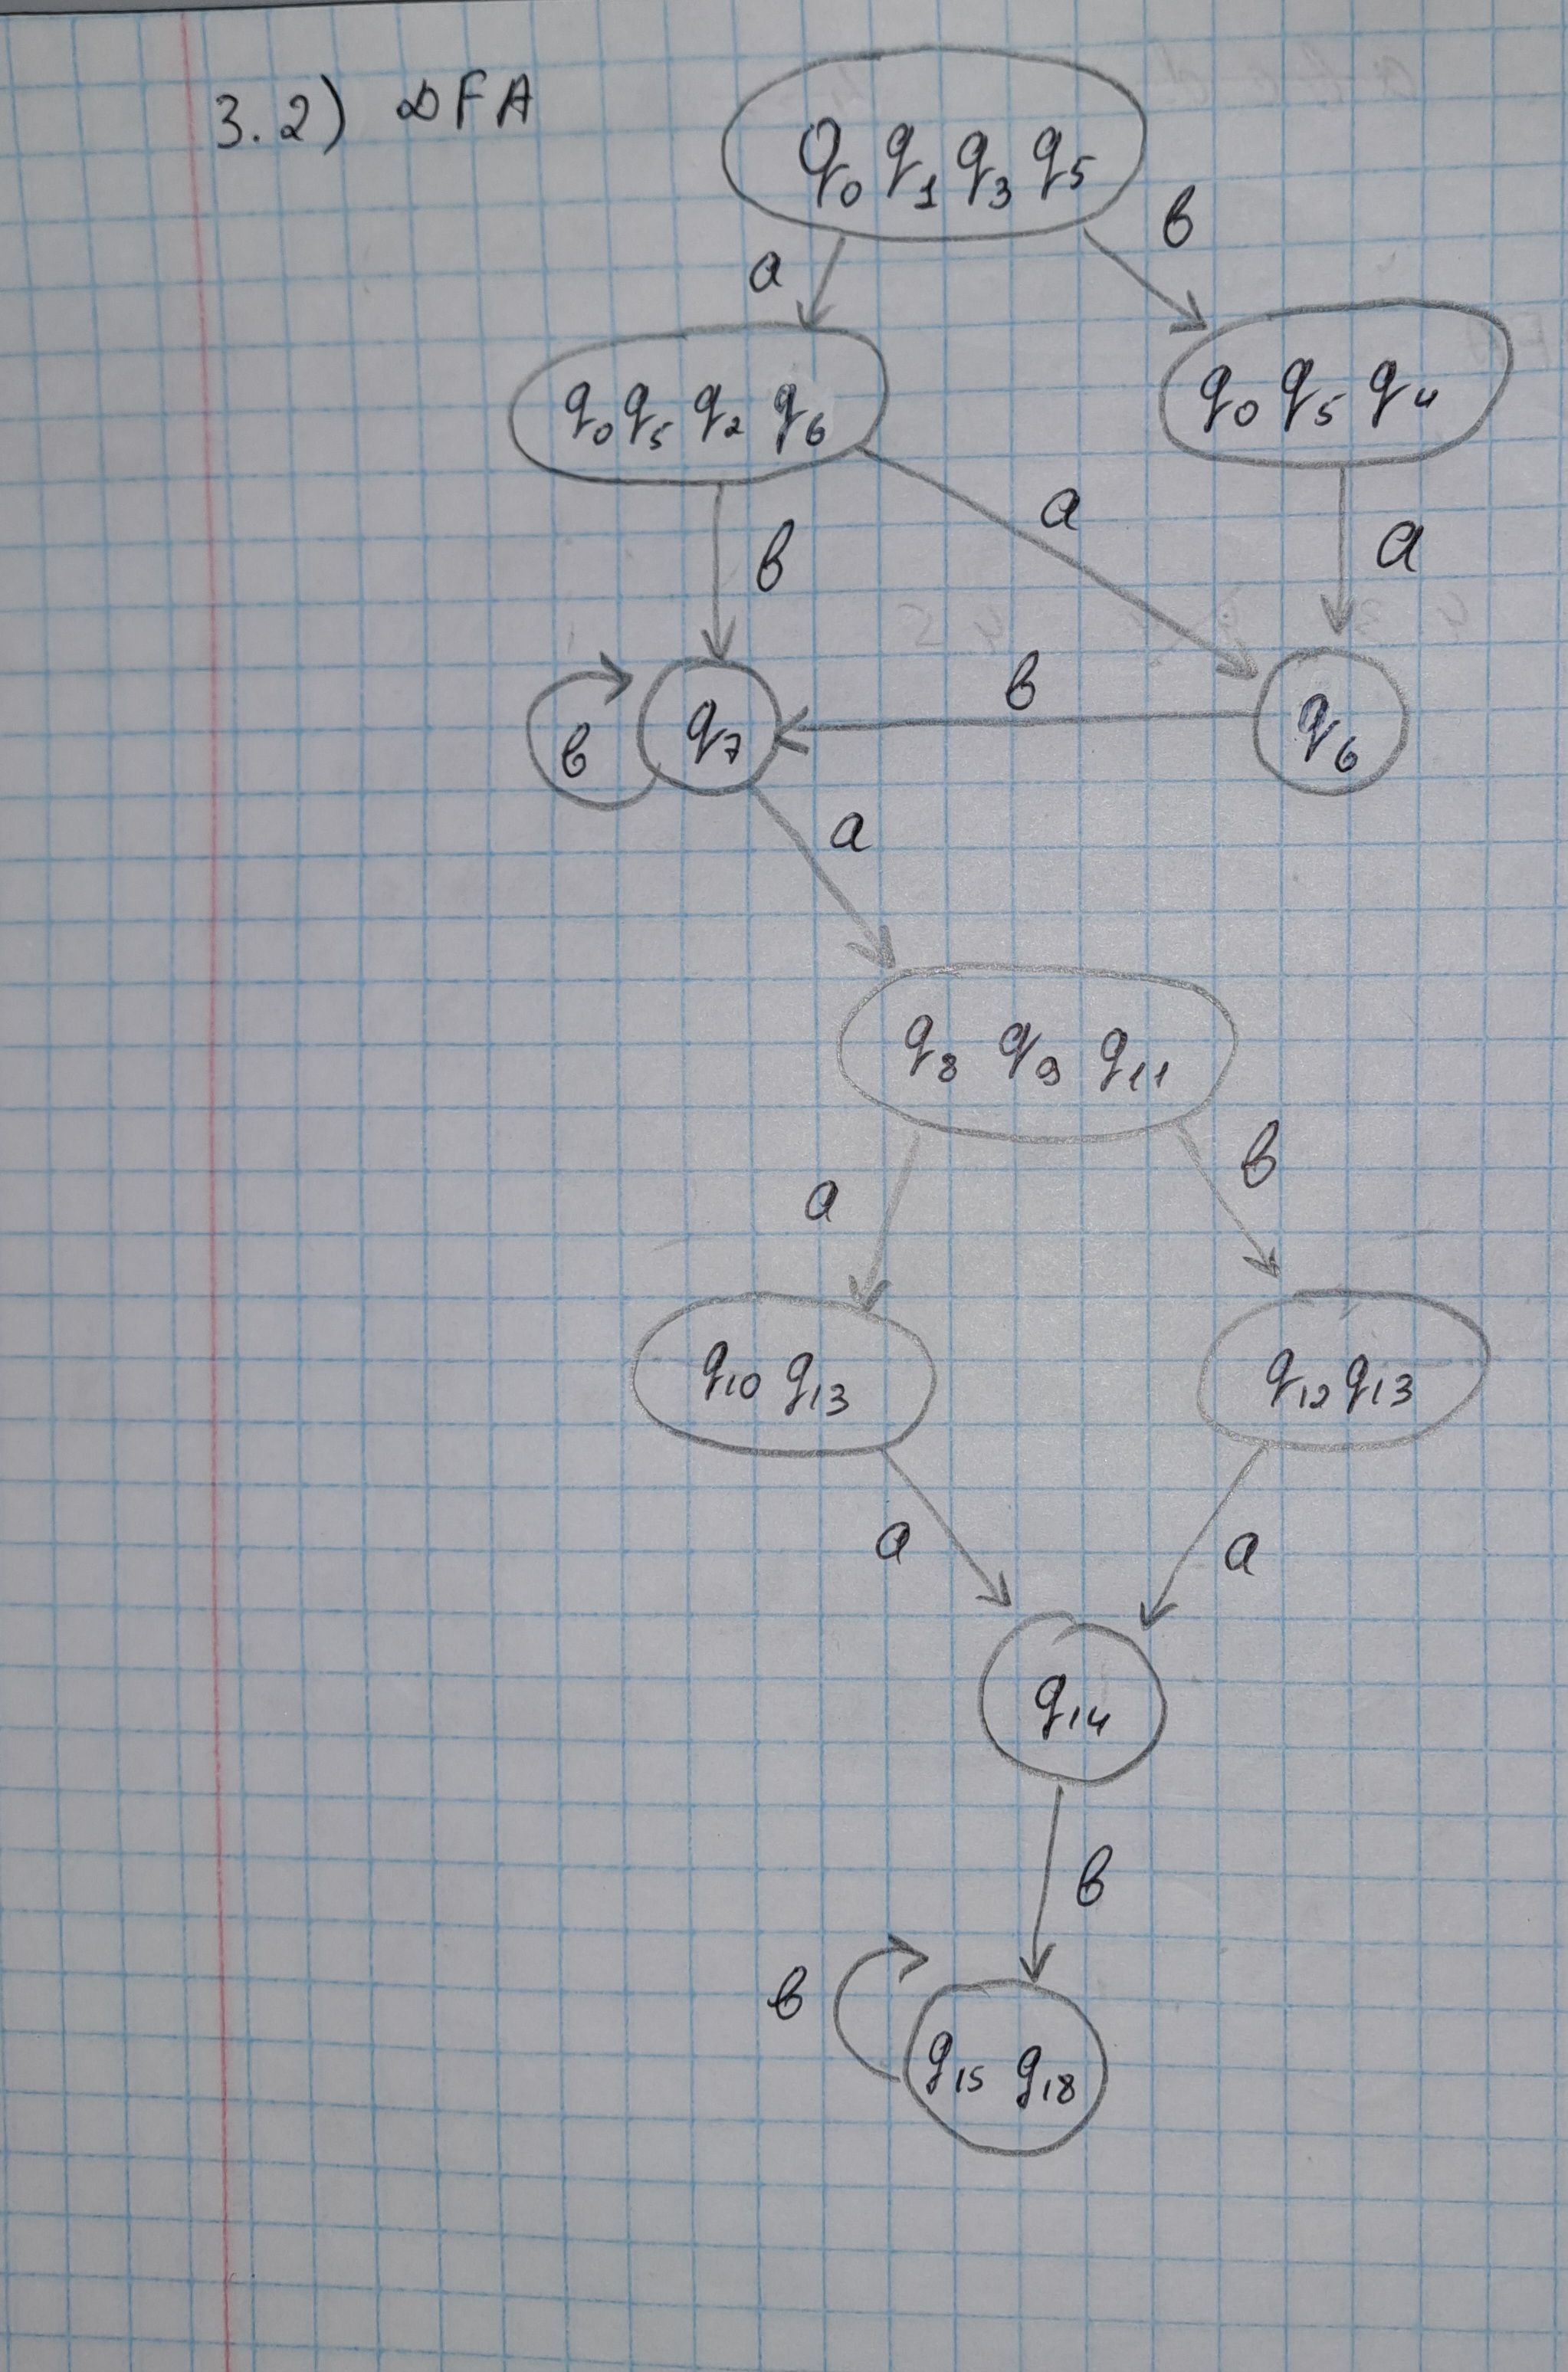 3.2) DFA
q₀ q₁ q₃ q₅
a
в
q₀ q₅ q₂ q₆
q₀ q₅ q₄
a
в
a
в
в
q₇
q₆
a
q₈ q₉ q₁₁
a
в
q₁₀ q₁₃
q₁₂ q₁₃
a
a
q₁₄
в
в
q₁₅ q₁₈